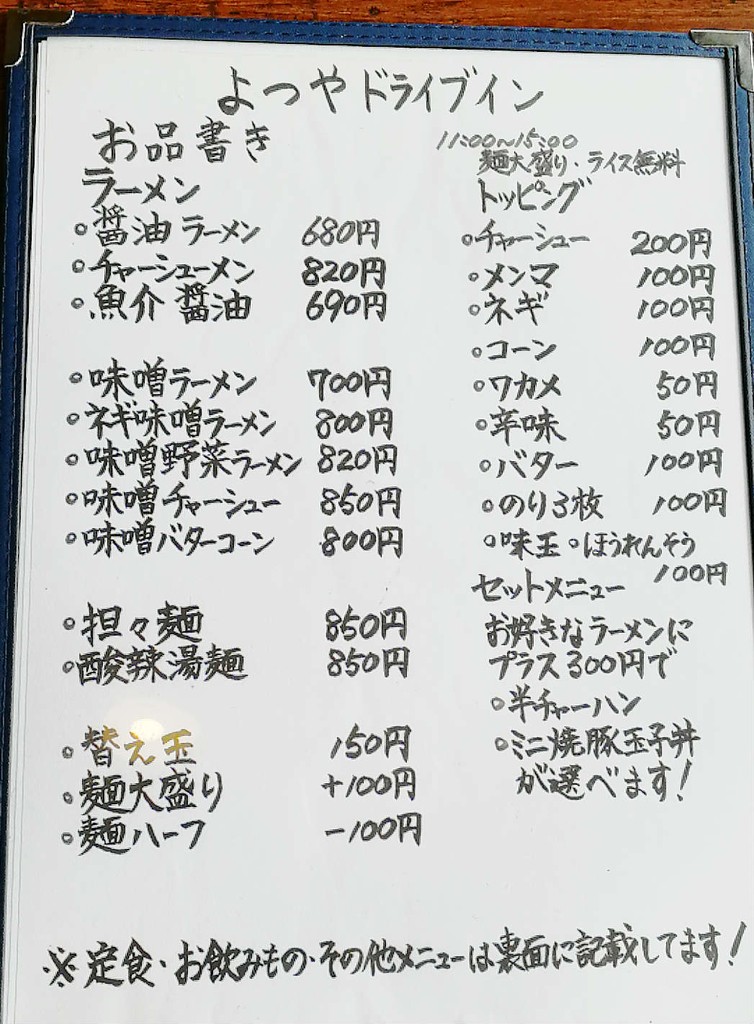 よつやドライブイン
お品書き
ラーメン
○醤油ラーメン 680円
○チャーシューメン 820円
○魚介醤油 690円
○味噌ラーメン 700円
○ネギ味噌ラーメン 800円
○味噌野菜ラーメン 820円
○味噌チャーシュー 850円
○味噌バターコーン 800円
○担々麺 850円
○酸辣湯麺 850円
○替え玉 150円
○麺大盛り +100円
○麺ハーフ -100円
11:00~15:00
麺大盛り・ライス無料
トッピング
○チャーシュー 200円
○メンマ 100円
○ネギ 100円
○コーン 100円
○ワカメ 50円
○辛味 50円
○バター 100円
○のり3枚 100円
○味玉 ○ほうれんそう
100円
セットメニュー
お好きなラーメンに
プラス300円で
○半チャーハン
○ミニ焼豚玉子丼
が選べます!
※定食・お飲みもの・その他メニューは裏面に記載してます!